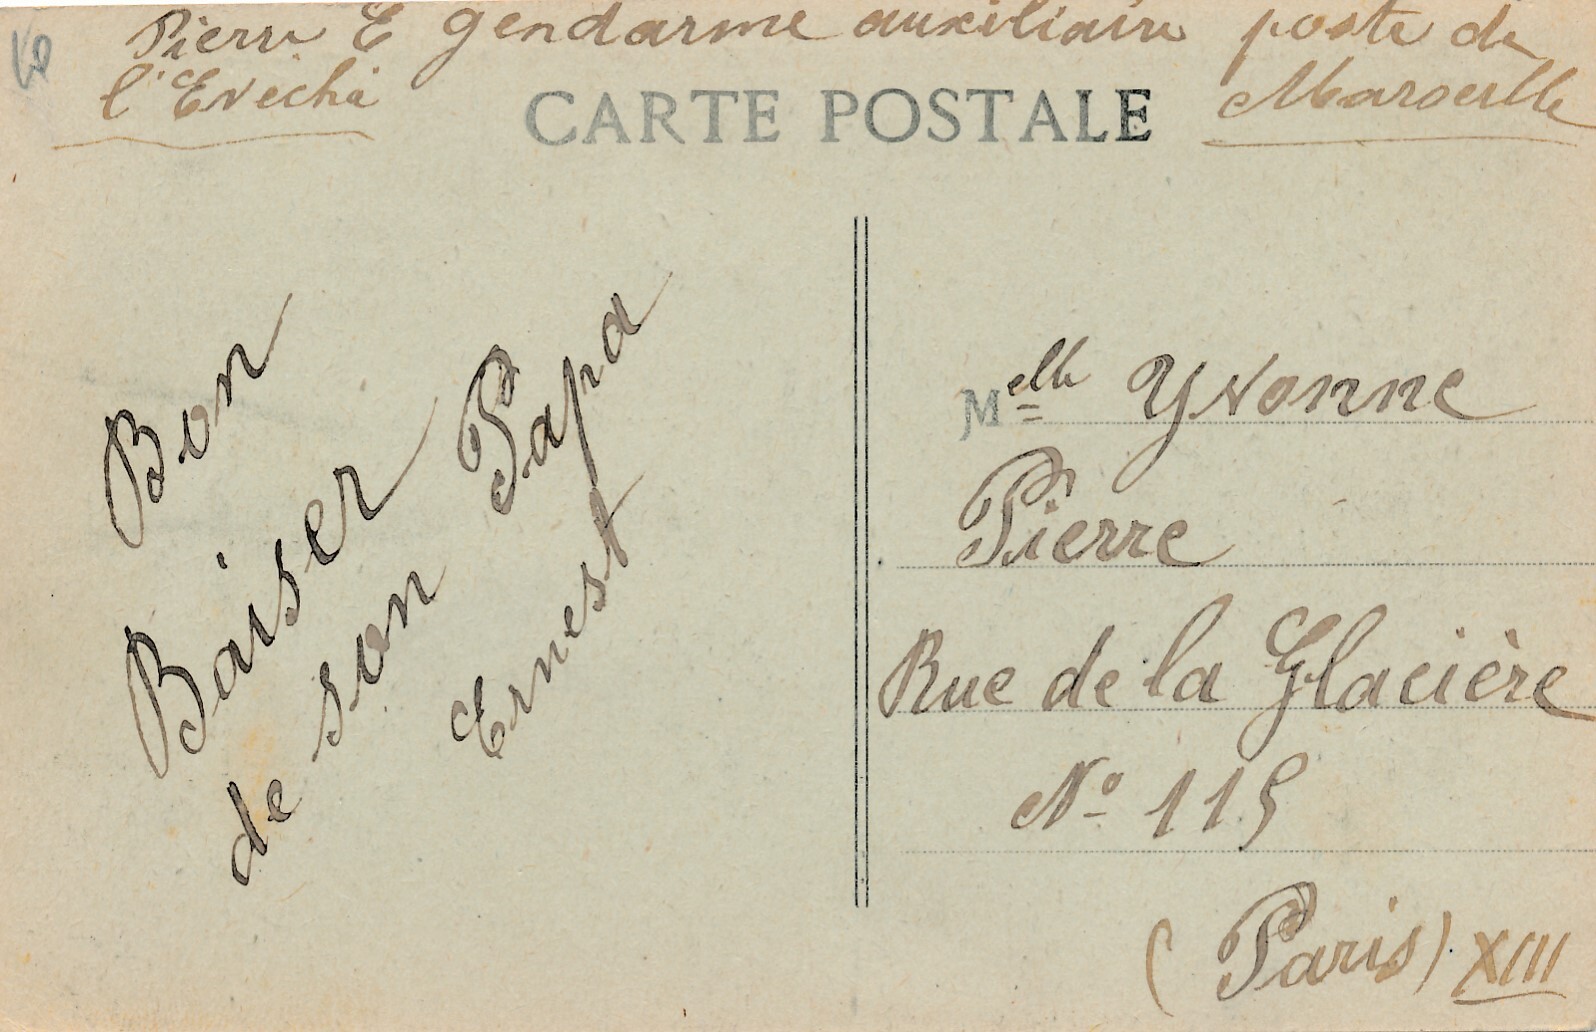 Pierre E gendarme auxiliaire poste de
l'Evéché Marseille
CARTE POSTALE
Bon
Baiser
de son Papa
Ernest
Melle Yvonne
Pierre
Rue de la Glacière
No 115
(Paris) XIII